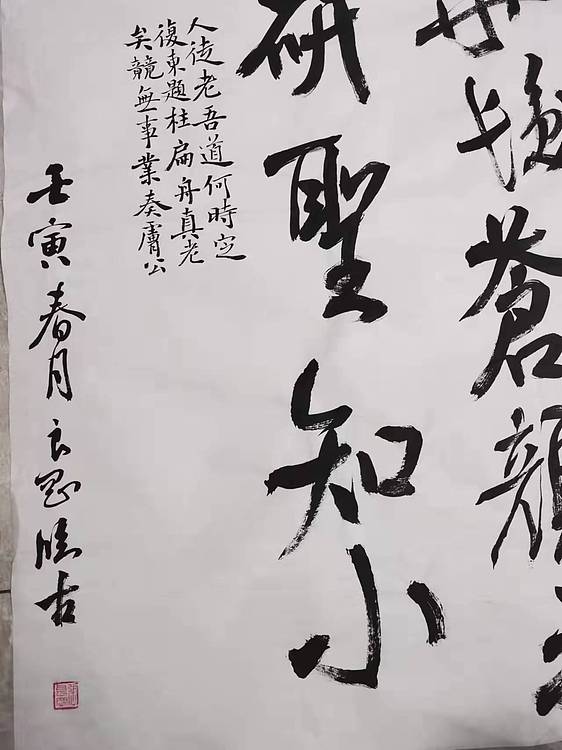 蒼顔
研聖知小
人徒老吾道何時定
復東題柱扁舟真老
矣競無事業奏膚公
壬寅春月良臨古